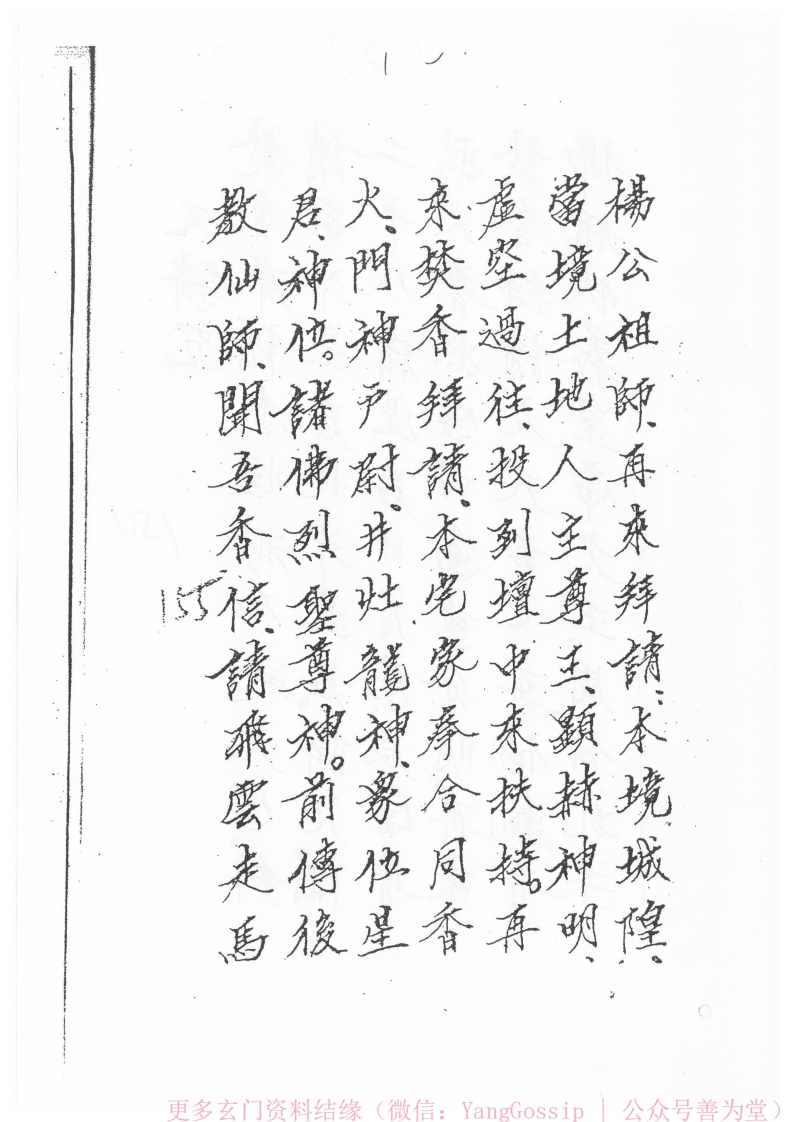 楊公祖師、再來拜請：本境城隍、
當境土地人主尊王、顯赫神明、
虛空過往、投列壇中來扶持。再
來焚香拜請、本宅家奉合同香
火、門神戶尉、井灶龍神、眾位星
君、神位。諸佛烈聖尊神。前傳後
教仙師、聞吾香信、請飛雲走馬
155
更多玄门资料结缘（微信：YangGossip | 公众号善为堂）